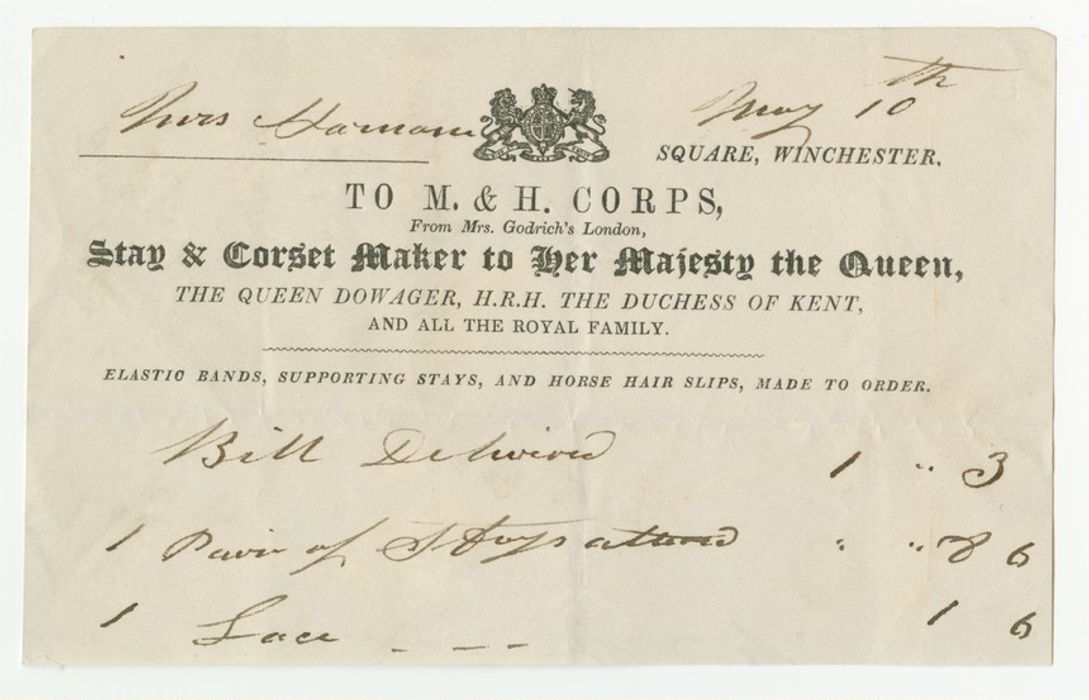 Mrs Hamam May 10th
SQUARE, WINCHESTER.
TO M. & H. CORPS,
From Mrs. Godrich's London,
Stay & Corset Maker to Her Majesty the Queen,
THE QUEEN DOWAGER, H.R.H. THE DUCHESS OF KENT,
AND ALL THE ROYAL FAMILY.
ELASTIC BANDS, SUPPORTING STAYS, AND HORSE HAIR SLIPS, MADE TO ORDER.
Bill Deliverd 1 " 3
1 Pair of Stays altered " " 8 6
1 Lace - - - 1 6